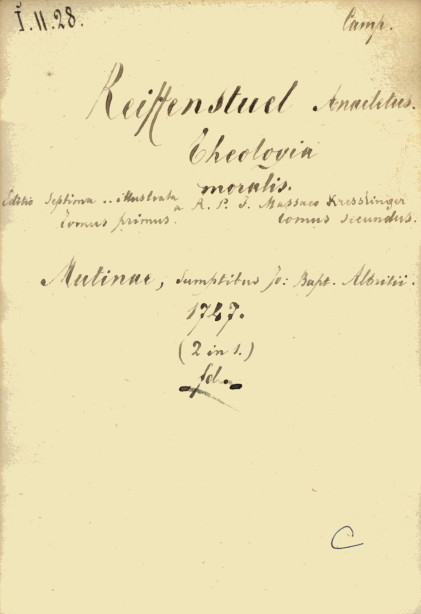 I. II. 28.
Camp.
Reiffenstuel Anacletus.
Theologia
moralis.
Editio septima .. illustrata a R. P. F. Massaeo Kresslinger
tomus primus. tomus secundus.
Mutinae, sumptibus Jo: Bapt. Albritii.
1747.
(2 in 1.)
fol.
C